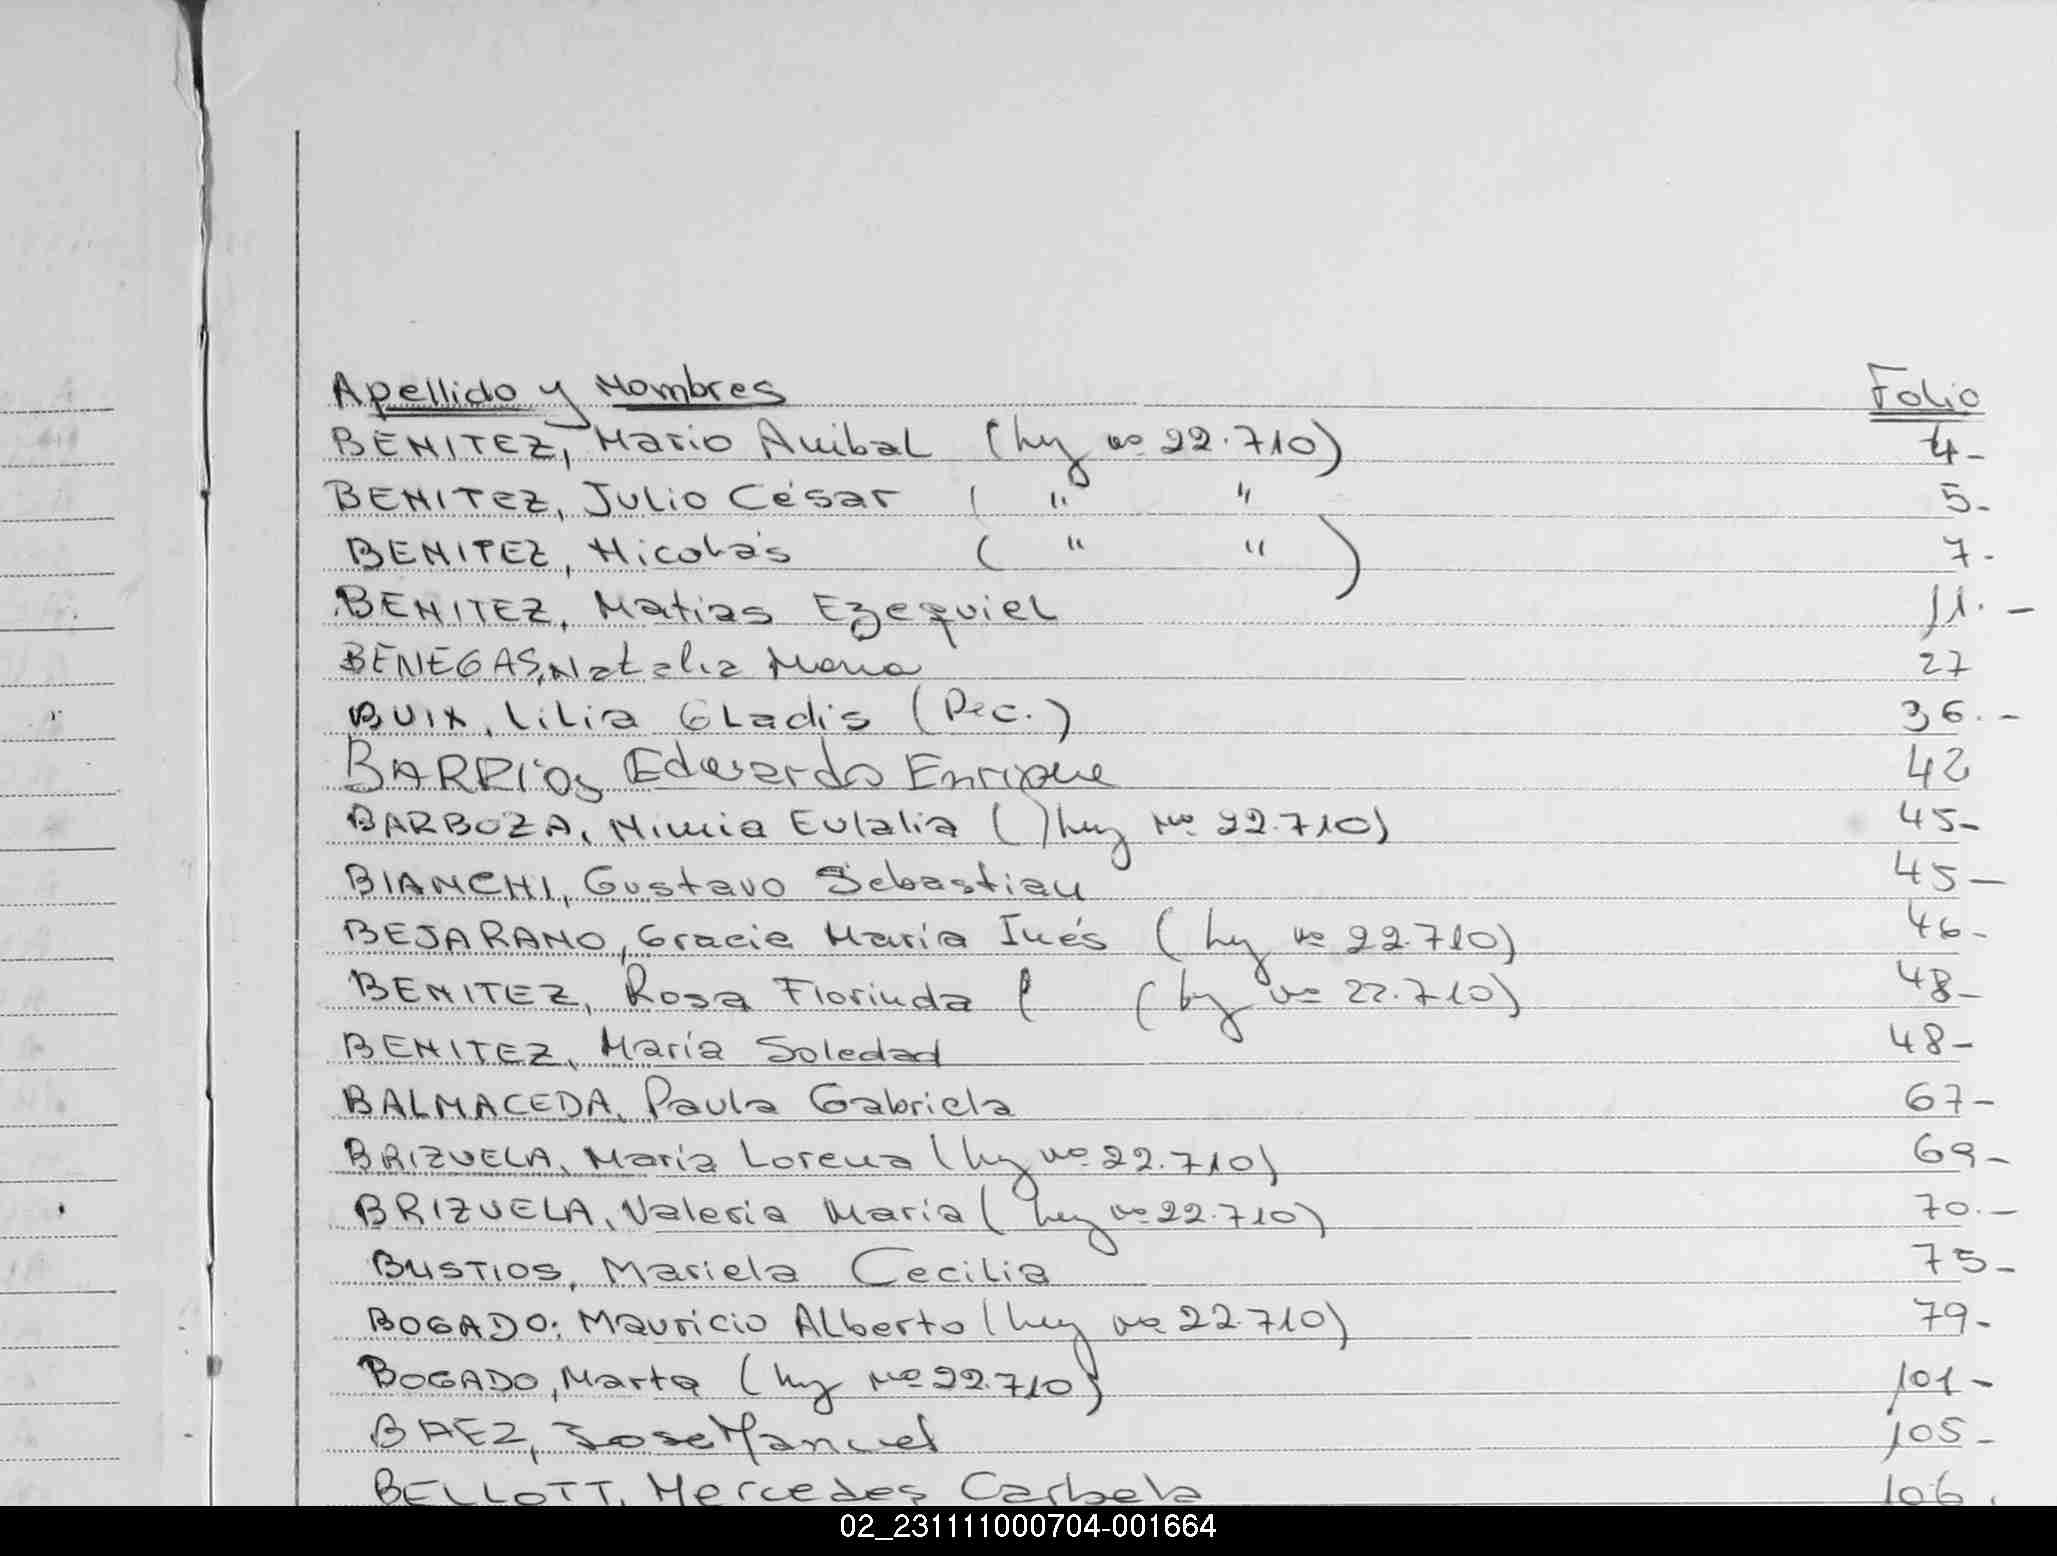 Apellido y Nombres Folio
BENITEZ, Mario Anibal (ley no 22.710) 4-
BENITEZ, Julio César ( " " 5-
BENITEZ, Nicolás ( " " ) 7-
BENITEZ, Matias Ezequiel 11.-
BENEGAS, Natalia Maria 27
BUIX, Lilia Gladis (Rec.) 36.-
BARRIOS Eduardo Enrique 42
BARBOZA, Nimia Eulalia ( ) ley No 22.710) 45-
BIANCHI, Gustavo Sebastian 45-
BEJARANO, Gracia María Inés (ley no 22.710) 46-
BENITEZ, Rosa Florinda ( (ley no 22.710) 48-
BENITEZ, María Soledad 48-
BALMACEDA, Paula Gabriela 67-
BRIZUELA, María Lorena (ley no 22.710) 69-
BRIZUELA, Valeria María (ley no 22.710) 70.-
BUSTIOS, Mariela Cecilia 75-
BOGADO, Mauricio Alberto (ley no 22.710) 79-
BOGADO, Marta (ley No 22.710) 101-
BAEZ, Jose Manuel 105-
BELLOTT, Mercedes 106.
02_231111000704-001664